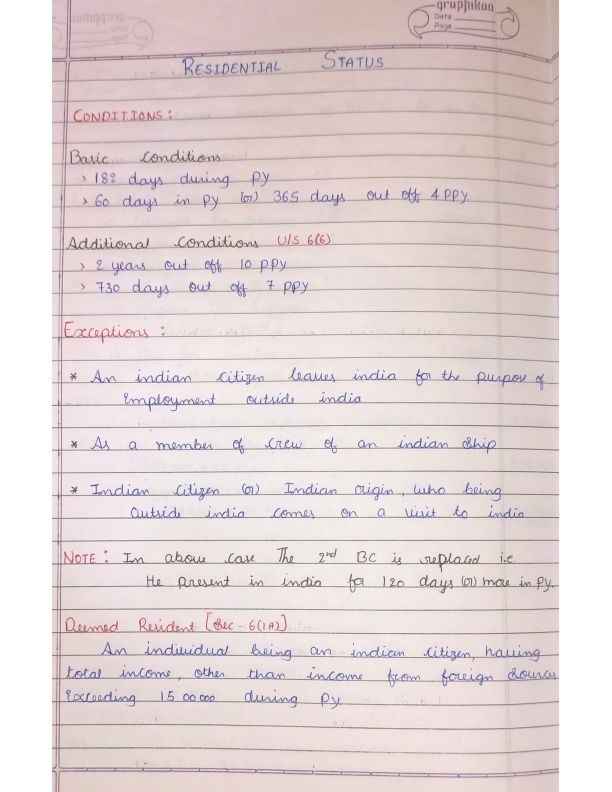 graphikaa
Date
Page
RESIDENTIAL STATUS
CONDITIONS:
Basic Conditions
> 182 days during PY
> 60 days in PY (or) 365 days out off 4 PPY
Additional Conditions U/S 6(6)
> 2 years out off 10 PPY
> 730 days out off 7 PPY
Exceptions:
* An indian citizen leaves india for the purpose of
Employment outside india
* As a member of crew of an indian ship
* Indian citizen (or) Indian origin, who being
outside india comes on a visit to india
NOTE: In above case The 2nd BC is replaced i.e
He present in india for 120 days (or) more in PY.
Deemed Resident [Sec-6(1A)]
An individual being an indian citizen, having
total income, other than income from foreign sources
Exceeding 15 00 000 during PY.